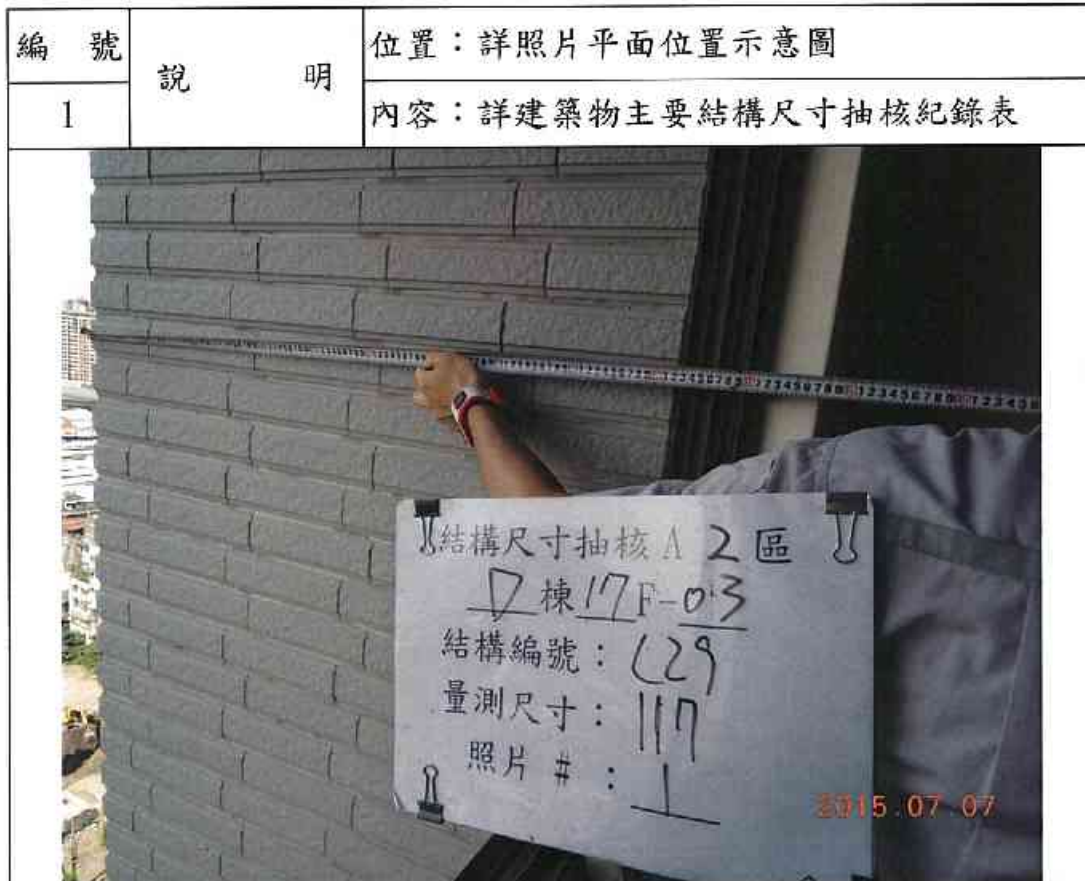 編 號
1
說 明
位置：詳照片平面位置示意圖
內容：詳建築物主要結構尺寸抽核紀錄表
結構尺寸抽核A 2區
D棟17F-03
結構編號：C29
量測尺寸：117
照片 #：1
2015.07.07